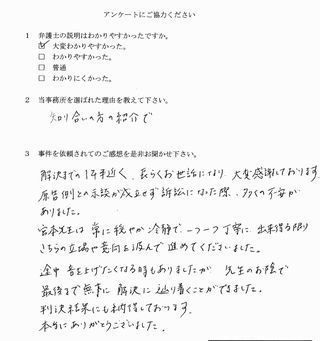 アンケートにご協力ください
1 弁護士の説明はわかりやすかったですか。
☑ 大変わかりやすかった。
□ わかりやすかった。
□ 普通
□ わかりにくかった。
2 当事務所を選ばれた理由を教えて下さい。
知り合いの方の紹介で
3 事件を依頼されてのご感想を是非お聞かせ下さい。
解決までの1年半近く、長らくお世話になり 大変感謝しております。
原告側との示談が成立せず訴訟になった際、多くの不安が
ありました。
宮本先生は 常に穏やか 冷静で 一つ一つ丁寧に 出来得る限り
こちらの立場や意向を汲んで進めてくださいました。
途中 音を上げたくなる時もありましたが 先生のお陰で
最後まで無事に 解決に辿り着くことができました。
判決結果にも納得しております。
本当にありがとうございました。